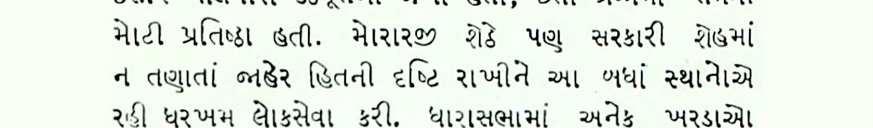 મોટી પ્રતિષ્ઠા હતી. મોરારજી શેઠે પણ સરકારી શેહમાં
ન તણાતાં જાહેર હિતની દષ્ટિ રાખીને આ બધાં સ્થાનોએ
રહી ધરખમ લોકસેવા કરી. ધારાસભામાં અનેક ખરડાઓ